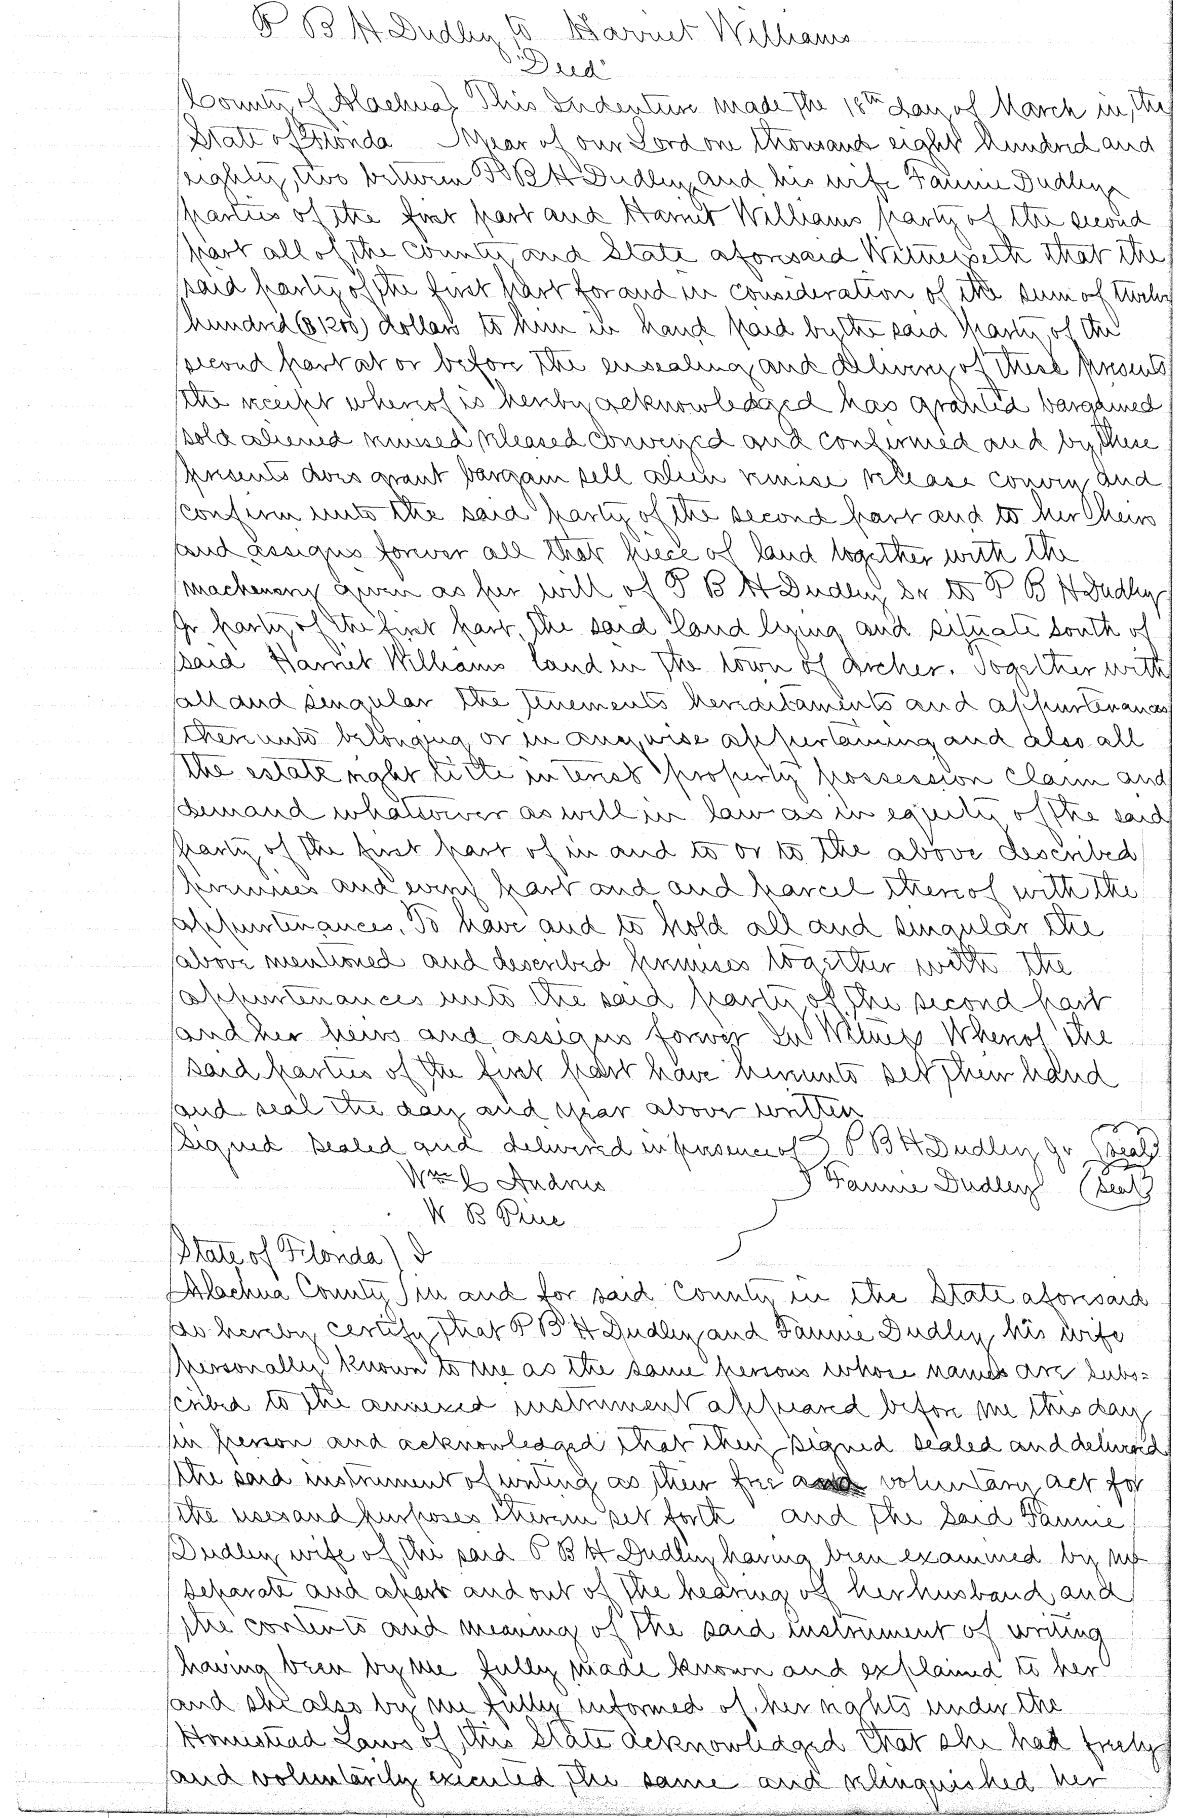 P B H Dudley to Harriet Williams
"Deed"
County of Alachua } This Indenture made the 18th day of March in the
State of Florida Year of our Lord one thousand eight hundred and
eighty two between P B H Dudley and his wife Fannie Dudley
parties of the first part and Harriet Williams party of the second
part all of the County and State aforesaid Witnesseth that the
said party of the first part for and in consideration of the sum of twelve
hundred ($1200) dollars to him in hand paid by the said party of the
second part at or before the ensealing and delivery of these presents
the receipt whereof is hereby acknowledged has granted bargained
sold aliened remised released conveyed and confirmed and by these
presents does grant bargain sell alien remise release convey and
confirm unto the said party of the second part and to her heirs
and assigns forever all that piece of land together with the
machenery given as per will of P B H Dudley Sr to P B H Dudley
Jr party of the first part, the said land lying and situate south of
said Harriet Williams land in the town of Archer. Together with
all and singular the tenements hereditaments and appurtenances
thereunto belonging or in anywise appertaining and also all
the estate right title interest property possession claim and
demand whatsoever as well in law as in equity of the said
party of the first part of in and to or to the above described
premises and every part and and parcel thereof with the
appurtenances. To have and to hold all and singular the
above mentioned and described premises together with the
appurtenances unto the said party of the second part
and her heirs and assigns forever In Witness Whereof the
said parties of the first part have hereunto set their hand
and seal the day and year above written
Signed sealed and delivered in presence of } P B H Dudley Jr (seal)
Wm C Andrus } Fannie Dudley (seal)
W B Pine
State of Florida ) I
Alachua County ) in and for said County in the State aforesaid
do hereby certify that P B H Dudley and Fannie Dudley his wife
personally known to me as the same persons whose names are subs=
cribed to the annexed instrument appeared before me this day
in person and acknowledged that they signed sealed and delivered
the said instrument of writing as their free and voluntary act for
the uses and purposes therein set forth and the said Fannie
Dudley wife of the said P B H Dudley having been examined by me
separate and apart and out of the hearing of her husband and
the contents and meaning of the said instrument of writing
having been by me fully made known and explained to her
and she also by me fully informed of her rights under the
Homestead Laws of this State acknowledged that she had freely
and voluntarily executed the same and relinquished her